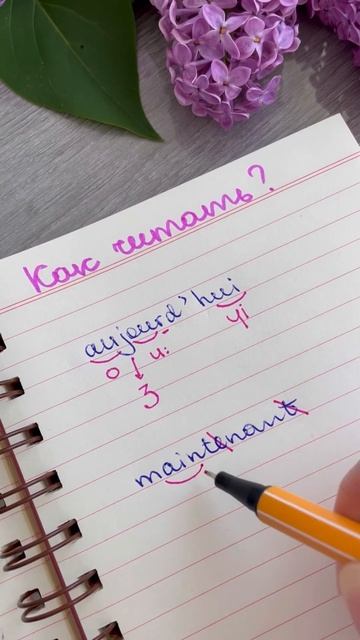 Как читать?
aujourd'hui
o u: ɥi
ʒ
maintenant